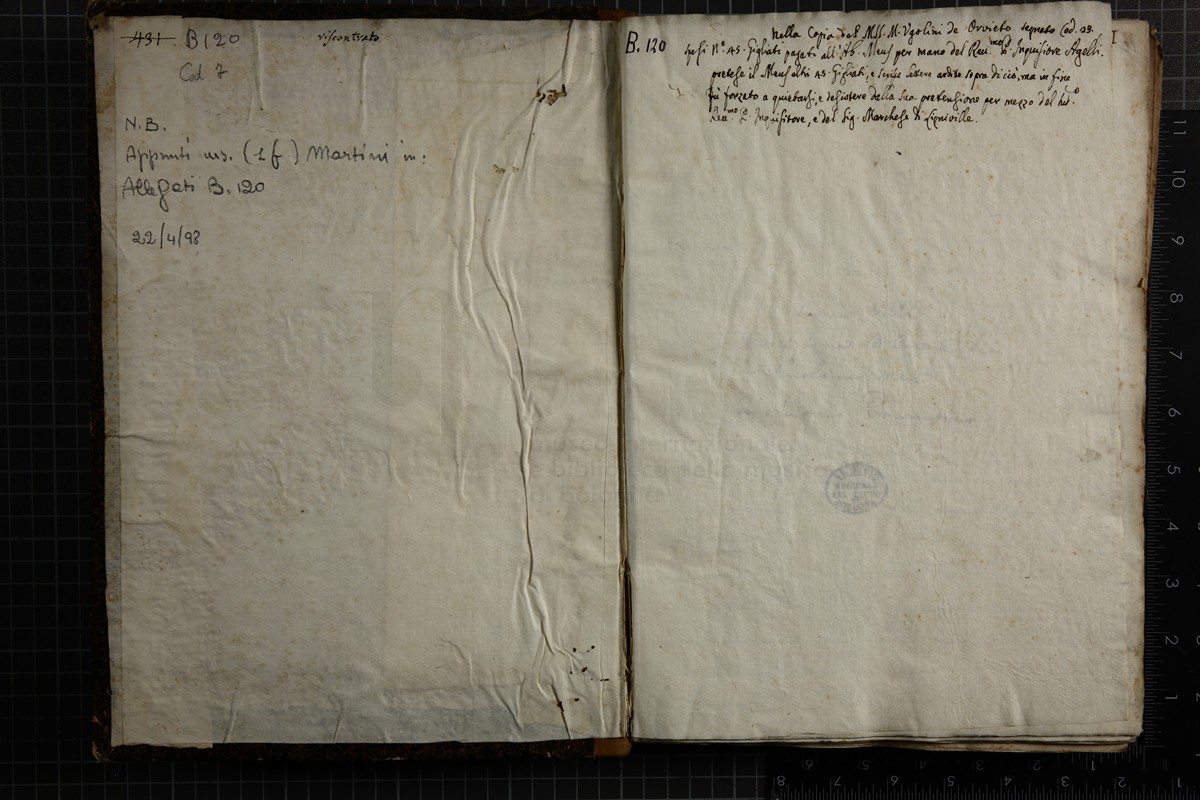 431 B 120
riscontrato
Cod 7
N.B.
Appunti ms. (1 f) Martini in:
Allegati B. 120
22/4/98
B. 120
Nella Copia del MSS. M. Ugolini de Orvieto segnato Cod. 23.
spesi N.º 45. Gigliati pagati all'Ab. Meus per mano del Reu.mo P. Inquisitore Agelli.
pretese il Meus altri 45. Gigliati, e scrisse lettere ardite sopra di ciò, ma in fine
fu forzato a quietarsi, e desistere della sua pretensione per mezzo del
Reu.mo P. Inquisitore, e del Sig. Marchese di Ligniville.
museo internazionale
e biblioteca della musica
di bologna